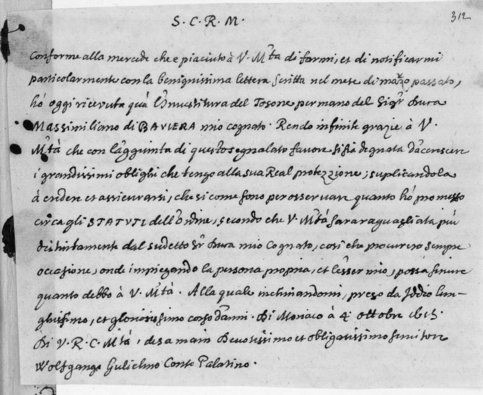 S. C. R. M.
312
Conforme alla mercede che è piaciuto à V. Mtà di farmi, et di notificarmi
particolarmente con la benignissima lettera scritta nel mese di marzo passato,
hó oggi riceuuta quà l'Inuestitura del Tosone per mano del Sigr Duca
Massimiliano di BAVIERA mio cognato. Rendo infinite grazie à V.
Mtà che con l'aggiunta di questo segnalato fauore si sia degnata d'accrescer
i grandissimi oblighi che tengo alla sua Real protezzione; suplicandola
à credere et assicurarsi, che si come sono per osseruar quanto hó promesso
circa gli STATVTI dell'Ordine, secondo che V. Mtà sarà ragualiata più
distintamente dal sudetto Sr Duca mio Cognato, così che procurerò sempre
occasione, onde impiegando la persona propria, et l'esser mio, possa seruire
quanto debbo à V. Mtà. Alla quale inchinandomi, prego da Iddio lun-
ghissimo, et gloriosissimo corso d'anni. Di Monaco à 4 ottobre
Di V. R. C. Mtà,
Deuotissimo et obligatissimo seruitore
Wolfgango Gulielmo Conte Palatino.